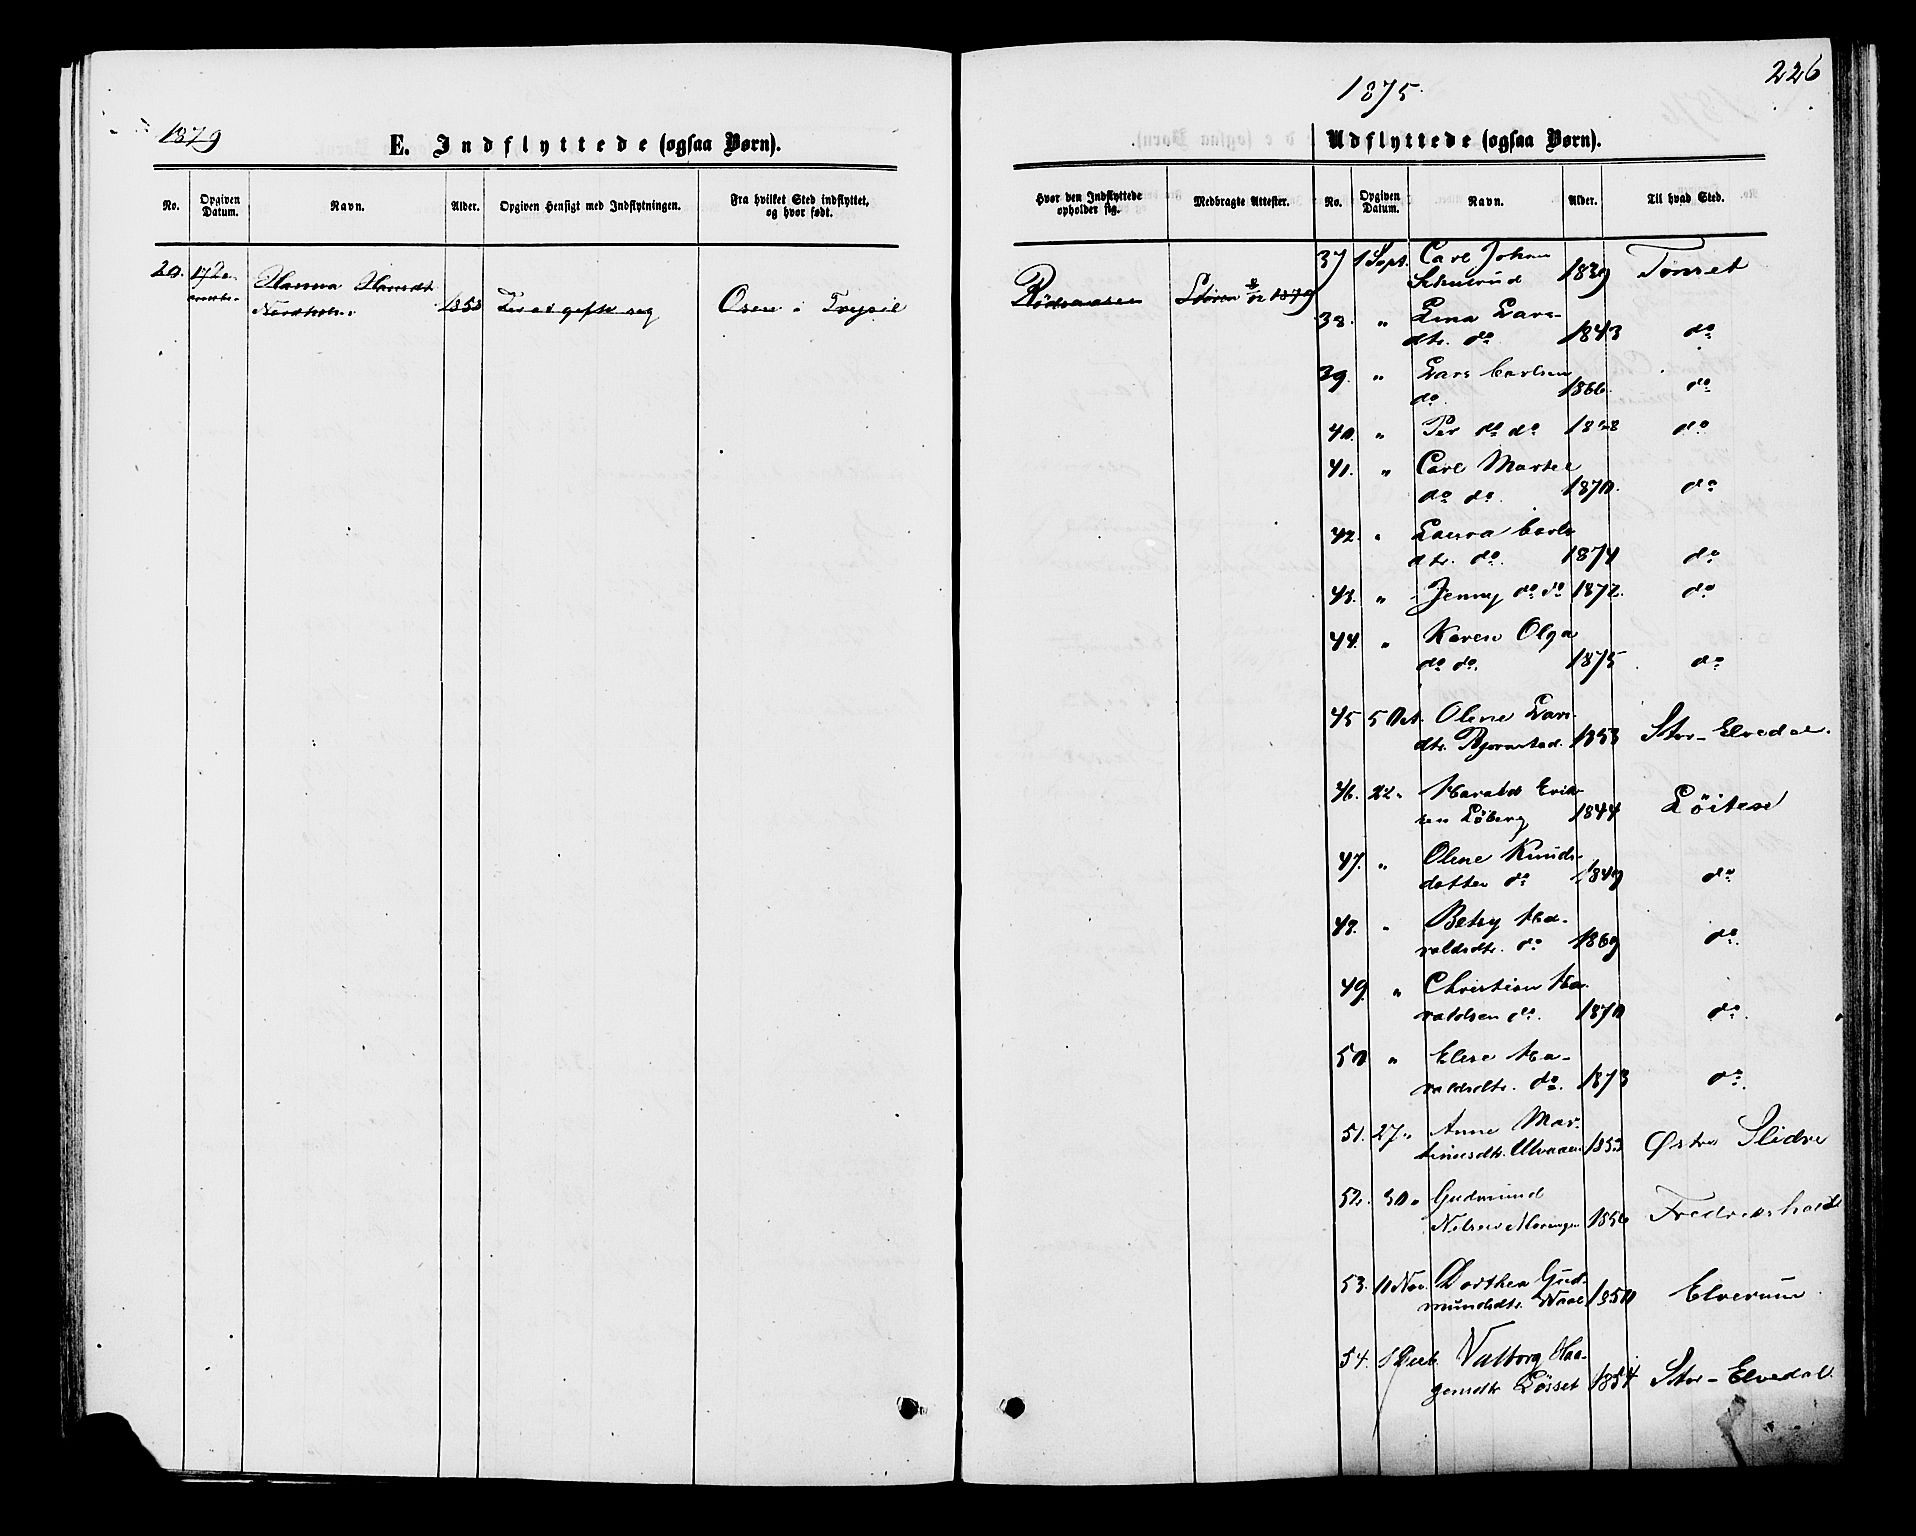 1879
E. Indflyttede (ogsaa Børn).
No.
Opgiven Datum.
Navn.
Alder.
Opgiven Hensigt med Indflytningen.
Fra hvilket Sted indflyttet, og hvor født.
20. Hanna Hansdt. 1853 for at gifte sig Osen i Trysil
226
1875.
Udflyttede (ogsaa Børn).
Hvor den Indflyttede opholder sig.
Medbragte Attester.
No.
Opgiven Datum.
Navn.
Alder.
Til hvad Sted.
37 1 Sept. Carl Johan
1839 Tønset
38. " Lina Lars-
dtr. do 1843 do
39. " Lars Carlsen
do. 1866. do
40. " Per do do do
41. " Carl Martel
do do. 1870. do
42. " Laura Carls-
dtr. do. 1874 do
43. " Jenny do do 1872. do
44. " Karen Olga
do do. 1875. do
45 5 Oct. Olene Lars-
dtr. Bjørnstad. 1853 Stor-Elvedal.
46. 22 " Harald Erik-
sen Løberg 1844 Løiten
47. " Olene Knuds-
datter do 1849 do
48. " Betsy Ha-
raldsdtr. do 1869 do.
49. " Christian Ha-
raldsen do. 1870 do.
50 " Elise Ha-
raldsdtr. do. 1873 do.
51. 27 " Anne Mar-
tinusdtr. Ulvaaen 1853 Østre Slidre
52. 30 " Gudmund
Nilsen 1856 Fredrikshald
53. 11 Nov. Dorthea Gud-
mundsdtr. 1850 Elverum.
54. Valborg Haa-
gensdtr Løsset 1854 Stor-Elvedal.